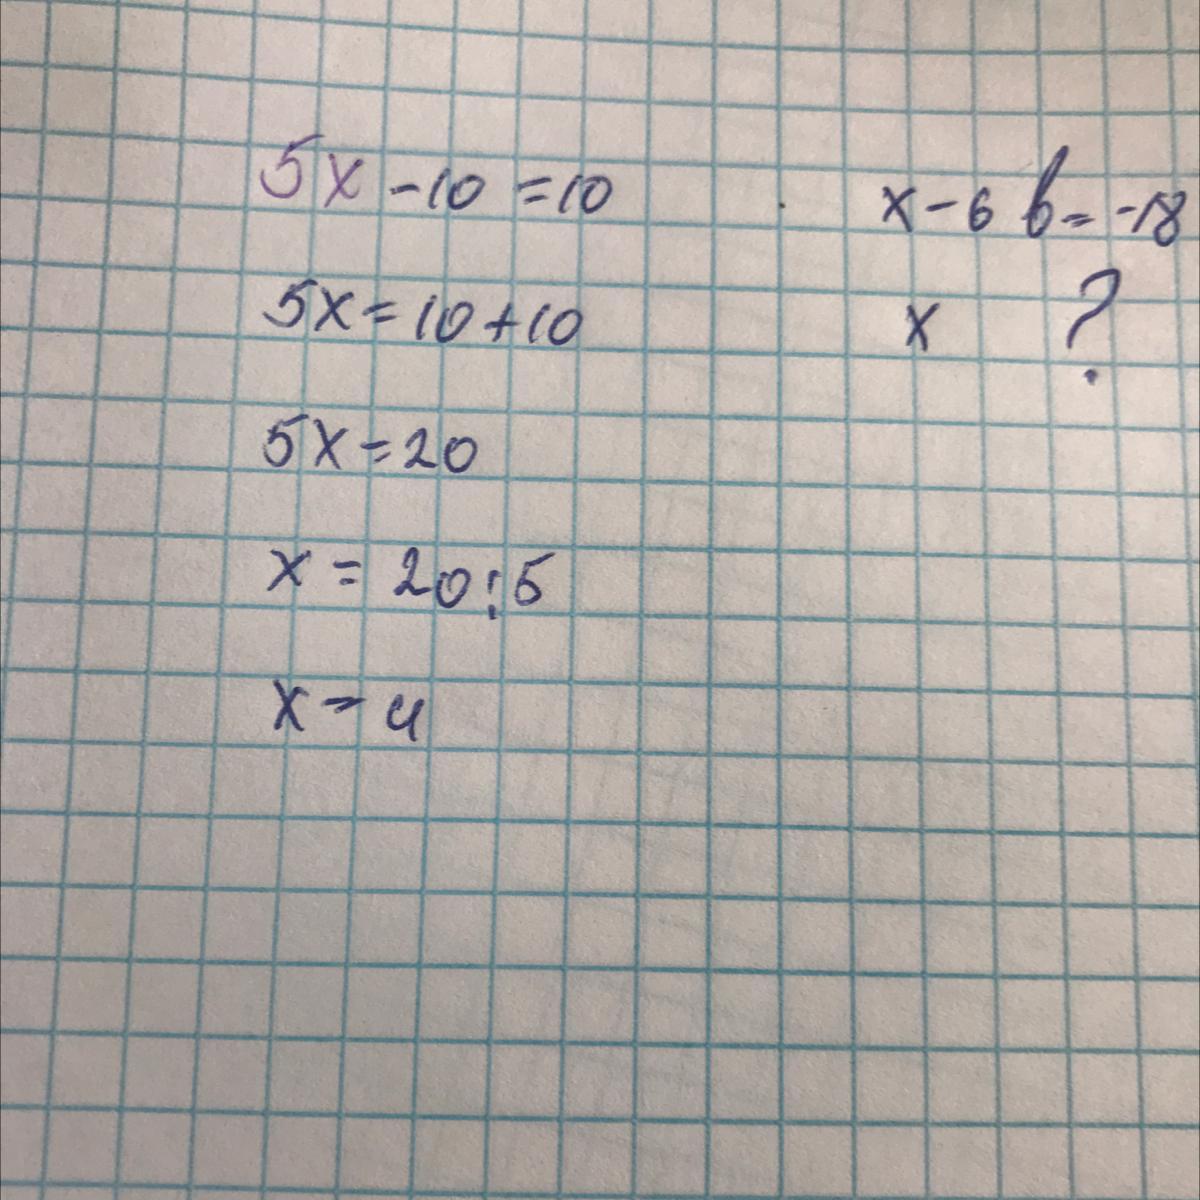 5x - 10 = 10
5x = 10 + 10
5x = 20
x = 20 : 5
x = 4
x - 6 b = -18
x ?